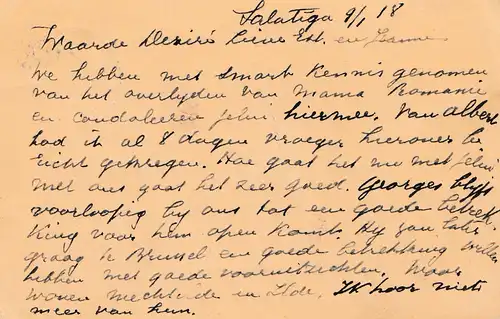 Salatiga 9/1 18
Waarde Deziré lieve Est. en Jeanne
We hebben met smart kennis genomen
van het overlyden van Mama Romanie
en condoleeren julie hiermee. Van Albert
had ik al 8 dagen vroeger hierover be
richt gekregen. Hoe gaat het nu met julie
met ons gaat het zeer goed. Georges blyft
voorloopig by ons tot een goede betrek
king voor hem open komt. Hy zou later
graag te Brussel een goede betrekking willen
hebben met goede vooruitzichten. Waar
wonen Mechtilde en Ilde. Ik hoor niets
meer van hun.